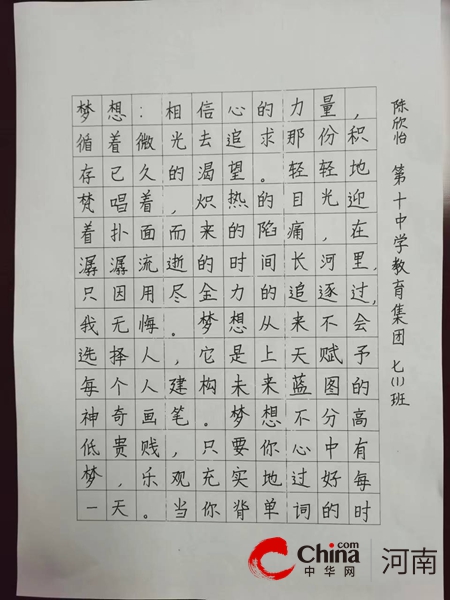 梦想:相信心的力量,
循着微光去追求那份积
存已久的渴望。轻轻地
梵唱着,炽热的目光,迎
着扑面而来的陷痛,在
潺潺流逝的时间长河里,
只因用尽全力的追逐过,
我无悔。梦想从来不会
选择人,它是上天赋予
每个人建构未来蓝图的
神奇画笔。梦想不分高
低贵贱,只要你心中有
梦,乐观充实地过好每
一天。当你背单词的时
陈欣怡 第十中学教育集团 七(1)班
China.com
中华网
河南